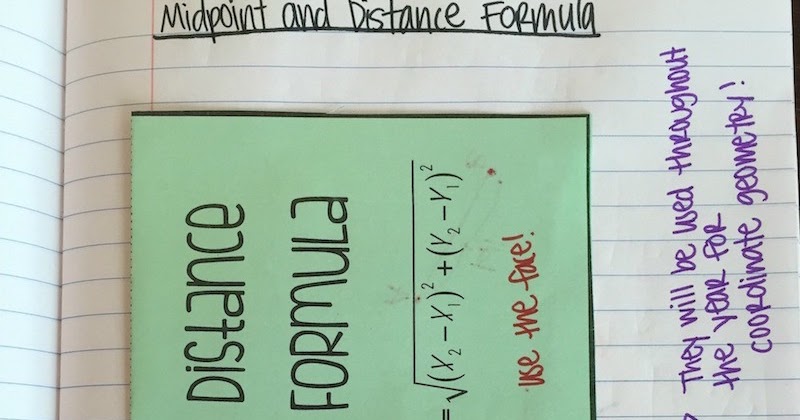 Midpoint and Distance Formula
Distance
Formula
= √(X₂ − X₁)² + (Y₂ − Y₁)²
use the face!
They will be used throughout
the year for
coordinate geometry!